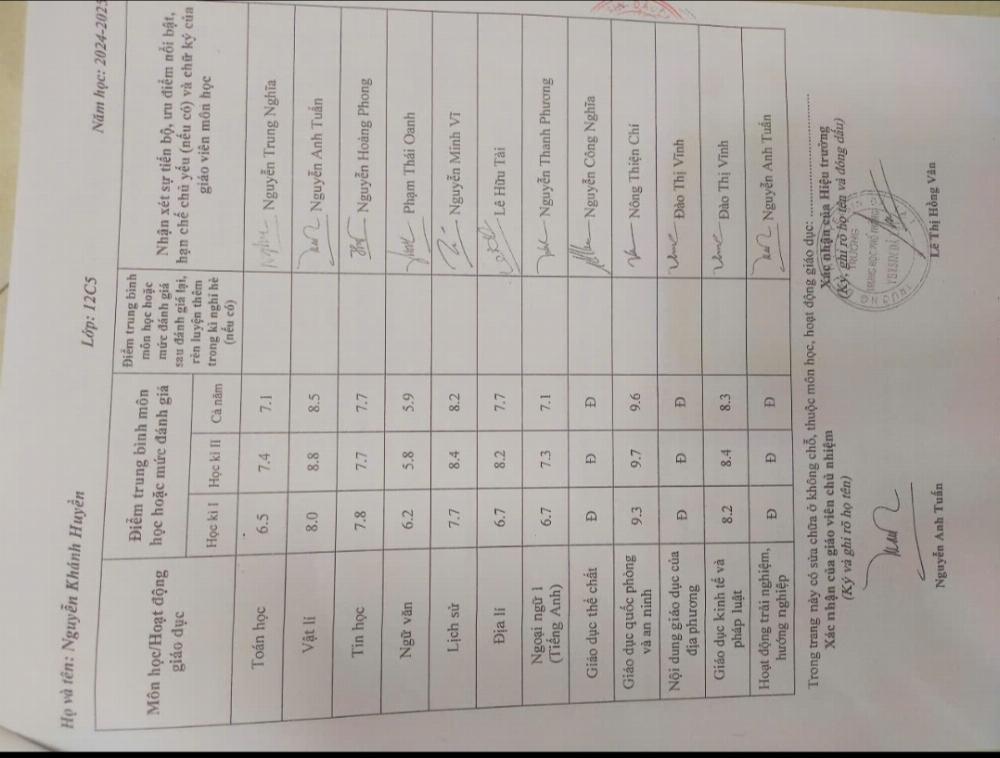 Họ và tên: Nguyễn Khánh Huyền Lớp: 12C5 Năm học: 2024-2025
Môn học/Hoạt động giáo dục
Điểm trung bình môn học hoặc mức đánh giá
Học kì I Học kì II Cả năm
Điểm trung bình môn học hoặc mức đánh giá sau đánh giá lại, rèn luyện thêm trong kì nghỉ hè (nếu có)
Nhận xét sự tiến bộ, ưu điểm nổi bật, hạn chế chủ yếu (nếu có) và chữ ký của giáo viên môn học
Toán học 6.5 7.4 7.1 Nguyễn Trung Nghĩa
Vật lí 8.0 8.8 8.5 Nguyễn Anh Tuấn
Tin học 7.8 7.7 7.7 Nguyễn Hoàng Phong
Ngữ văn 6.2 5.8 5.9 Phạm Thái Oanh
Lịch sử 7.7 8.4 8.2 Nguyễn Minh Vĩ
Địa lí 6.7 8.2 7.7 Lê Hữu Tài
Ngoại ngữ 1 (Tiếng Anh) 6.7 7.3 7.1 Nguyễn Thanh Phương
Giáo dục thể chất Đ Đ Đ Nguyễn Công Nghĩa
Giáo dục quốc phòng và an ninh 9.3 9.7 9.6 Nông Thiện Chí
Nội dung giáo dục của địa phương Đ Đ Đ Đào Thị Vĩnh
Giáo dục kinh tế và pháp luật 8.2 8.4 8.3 Đào Thị Vĩnh
Hoạt động trải nghiệm, hướng nghiệp Đ Đ Đ Nguyễn Anh Tuấn
Trong trang này có sửa chữa ở không chỗ, thuộc môn học, hoạt động giáo dục: ...............
Xác nhận của giáo viên chủ nhiệm
(Ký và ghi rõ họ tên)
Nguyễn Anh Tuấn
Xác nhận của Hiệu trưởng
(Ký, ghi rõ họ tên và đóng dấu)
Lê Thị Hồng Vân